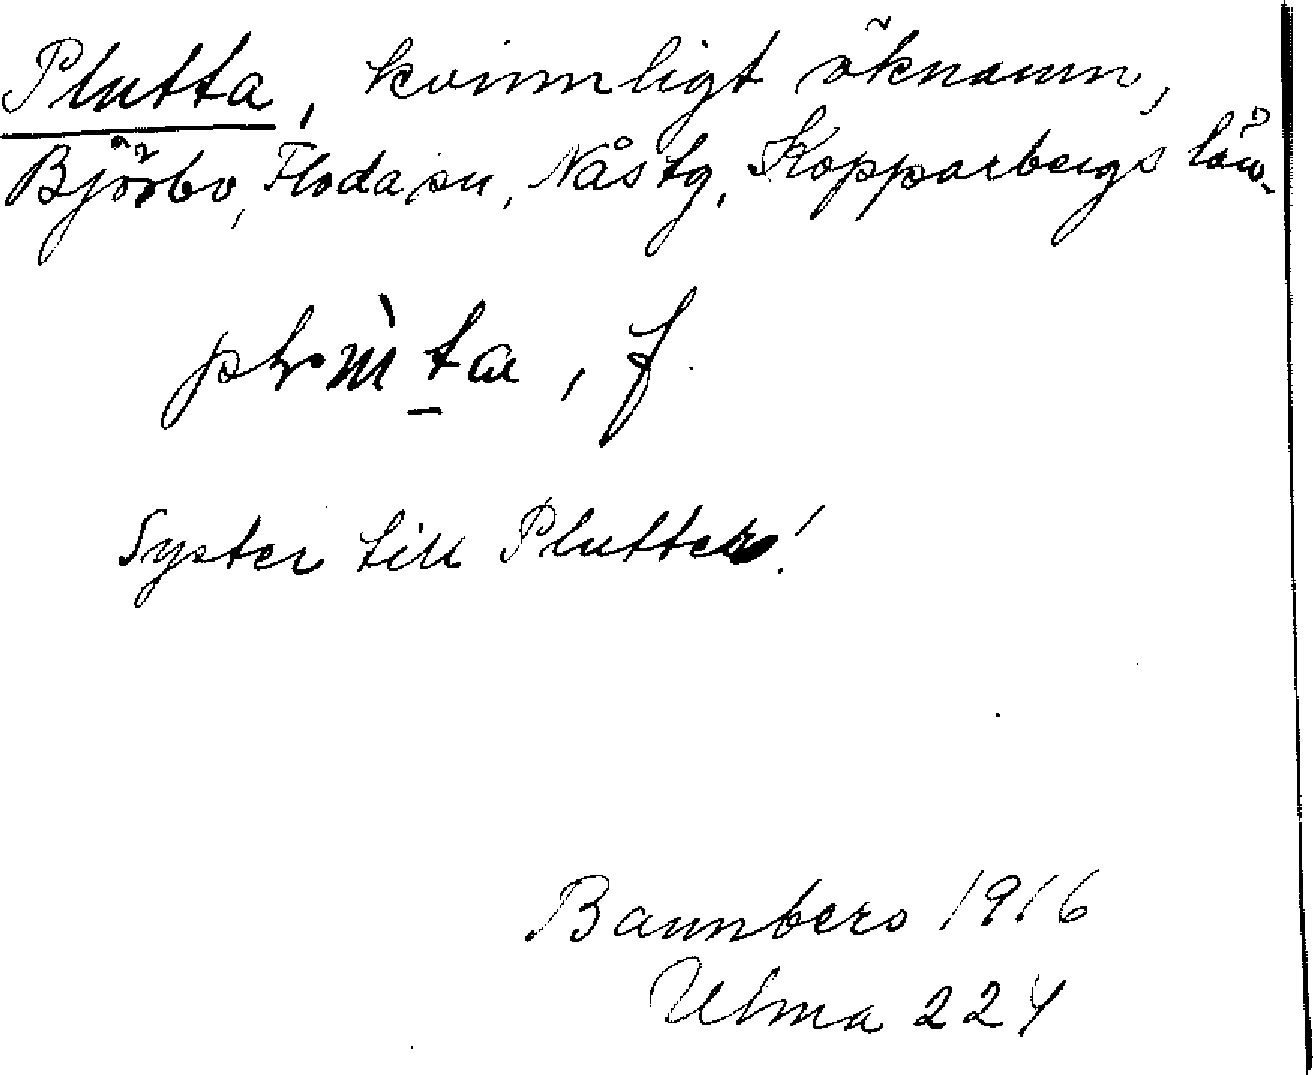 Plutta, kvinnligt öknamn,
Björbo, Floda sn, Nås tg, Kopparbergs län.
, f.
Syster till Plutter!
1916
Ulma 224